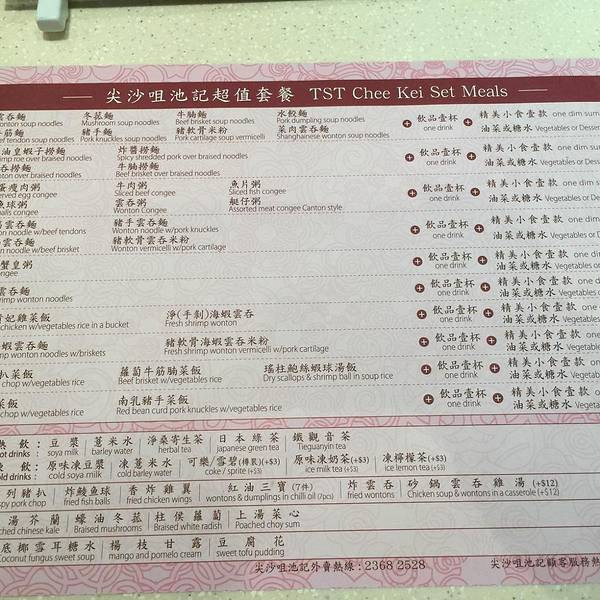 尖沙咀池記超值套餐 TST Chee Kei Set Meals
雲吞麵 冬菰麵 牛腩麵 水餃麵
onton soup noodles Mushroom soup noodles Beef brisket soup noodles Pork dumpling soup noodles
筋麵 豬手麵 豬軟骨米粉 菜肉雲吞麵
ef tendon soup noodles Pork knuckles soup noodles Pork cartilage soup vermicelli Shanghainese wonton soup noodles
飲品壹杯 精美小食壹款 one dim sum
one drink 油菜或糖水 Vegetables or Desser
油皇蝦子撈麵 炸醬撈麵
mp roe over braised noodles Spicy shredded pork over braised noodles
吞撈麵 牛腩撈麵
onton over braised noodles Beef brisket over braised noodles
飲品壹杯 精美小食壹款 one dim sum
one drink 油菜或糖水 Vegetables or Desse
蛋瘦肉粥 牛肉粥 魚片粥
erved egg congee Sliced beef congee Sliced fish congee
魚球粥 雲吞粥 艇仔粥
balls congee Wonton Congee Assorted meat congee Canton style
飲品壹杯 精美小食壹款 one dim sum
one drink 油菜或糖水 Vegetables or Des
雲吞麵 豬手雲吞麵
on noodle w/beef tendons Wonton noodle w/pork knuckles
雲吞麵 豬軟骨雲吞米粉
on noodle w/beef brisket Wonton vermicelli w/pork cartilage
飲品壹杯 精美小食壹款 one dim s
one drink 油菜或糖水 Vegetables or D
蟹皇粥
ongee
飲品壹杯 精美小食壹款 one dim
one drink 油菜或糖水 Vegetables or
雲吞麵
imp wonton noodles
飲品壹杯 精美小食壹款 one dim
one drink 油菜或糖水 Vegetables or
妃雞菜飯 淨(手剝)海蝦雲吞
chicken w/vegetables rice in a bucket Fresh shrimp wonton
飲品壹杯 精美小食壹款 one dim
one drink 油菜或糖水 Vegetables o
蝦雲吞麵 豬軟骨海蝦雲吞米粉
mp wonton noodles w/briskets Fresh shrimp wonton vermicelli w/pork cartilage
飲品壹杯 精美小食壹款 one di
one drink 油菜或糖水 Vegetables
扒菜飯 蘿蔔牛筋腩菜飯 瑤柱鮑絲蝦球湯飯
chop w/vegetables rice Beef brisket w/vegetables rice Dry scallops & shrimp ball in soup rice
飲品壹杯 精美小食壹款 one d
one drink 油菜或糖水 Vegetables
菜飯 南乳豬手菜飯
chop w/vegetables rice Red bean curd pork knuckles w/vegetables rice
飲品壹杯 精美小食壹款 one
one drink 油菜或糖水 Vegetable
熱飲: 豆漿 薏米水 淨桑寄生茶 日本綠茶 鐵觀音茶
ot drinks soya milk barley water herbal tea japanese green tea Tieguanyin tea
飲: 原味凍豆漿 凍薏米水 可樂/雪碧(樽裝)(+$3) 原味凍奶茶(+$3) 凍檸檬茶(+$3)
d drinks cold soya milk cold barley water coke / sprite (+$3) ice milk tea (+$3) ice lemon tea (+$3)
列豬扒 炸鯪魚球 香炸雞翼 紅油三寶 (7件) 炸雲吞 砂鍋雲吞雞湯 (+$12)
spy pork chop fried fish balls fried chicken wings wontons & dumplings in chilli oil (7pcs) fried wontons Chicken soup & wontons in a casserole (+$12)
湯芥蘭 蠔油冬菰 柱侯蘿蔔 上湯菜心
ched chinese kale Braised mushrooms Braised white radish Poached choy sum
底椰雪耳糖水 楊枝甘露 豆腐花
Coconut fungus sweet soup mango and pomelo cream sweet tofu pudding
尖沙咀池記外賣熱線:2368 2528 尖沙咀池記顧客服務熱